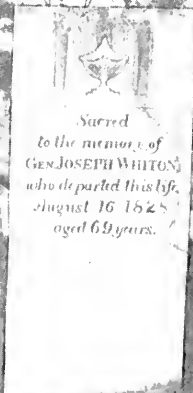 Sacred
to the memory of
GEN. JOSEPH WHITON,
who departed this life,
August 16 1828
aged 69 years.